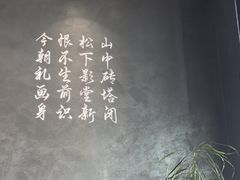 山中砖塔闭
松下影堂新
恨不生前识
今朝礼画身